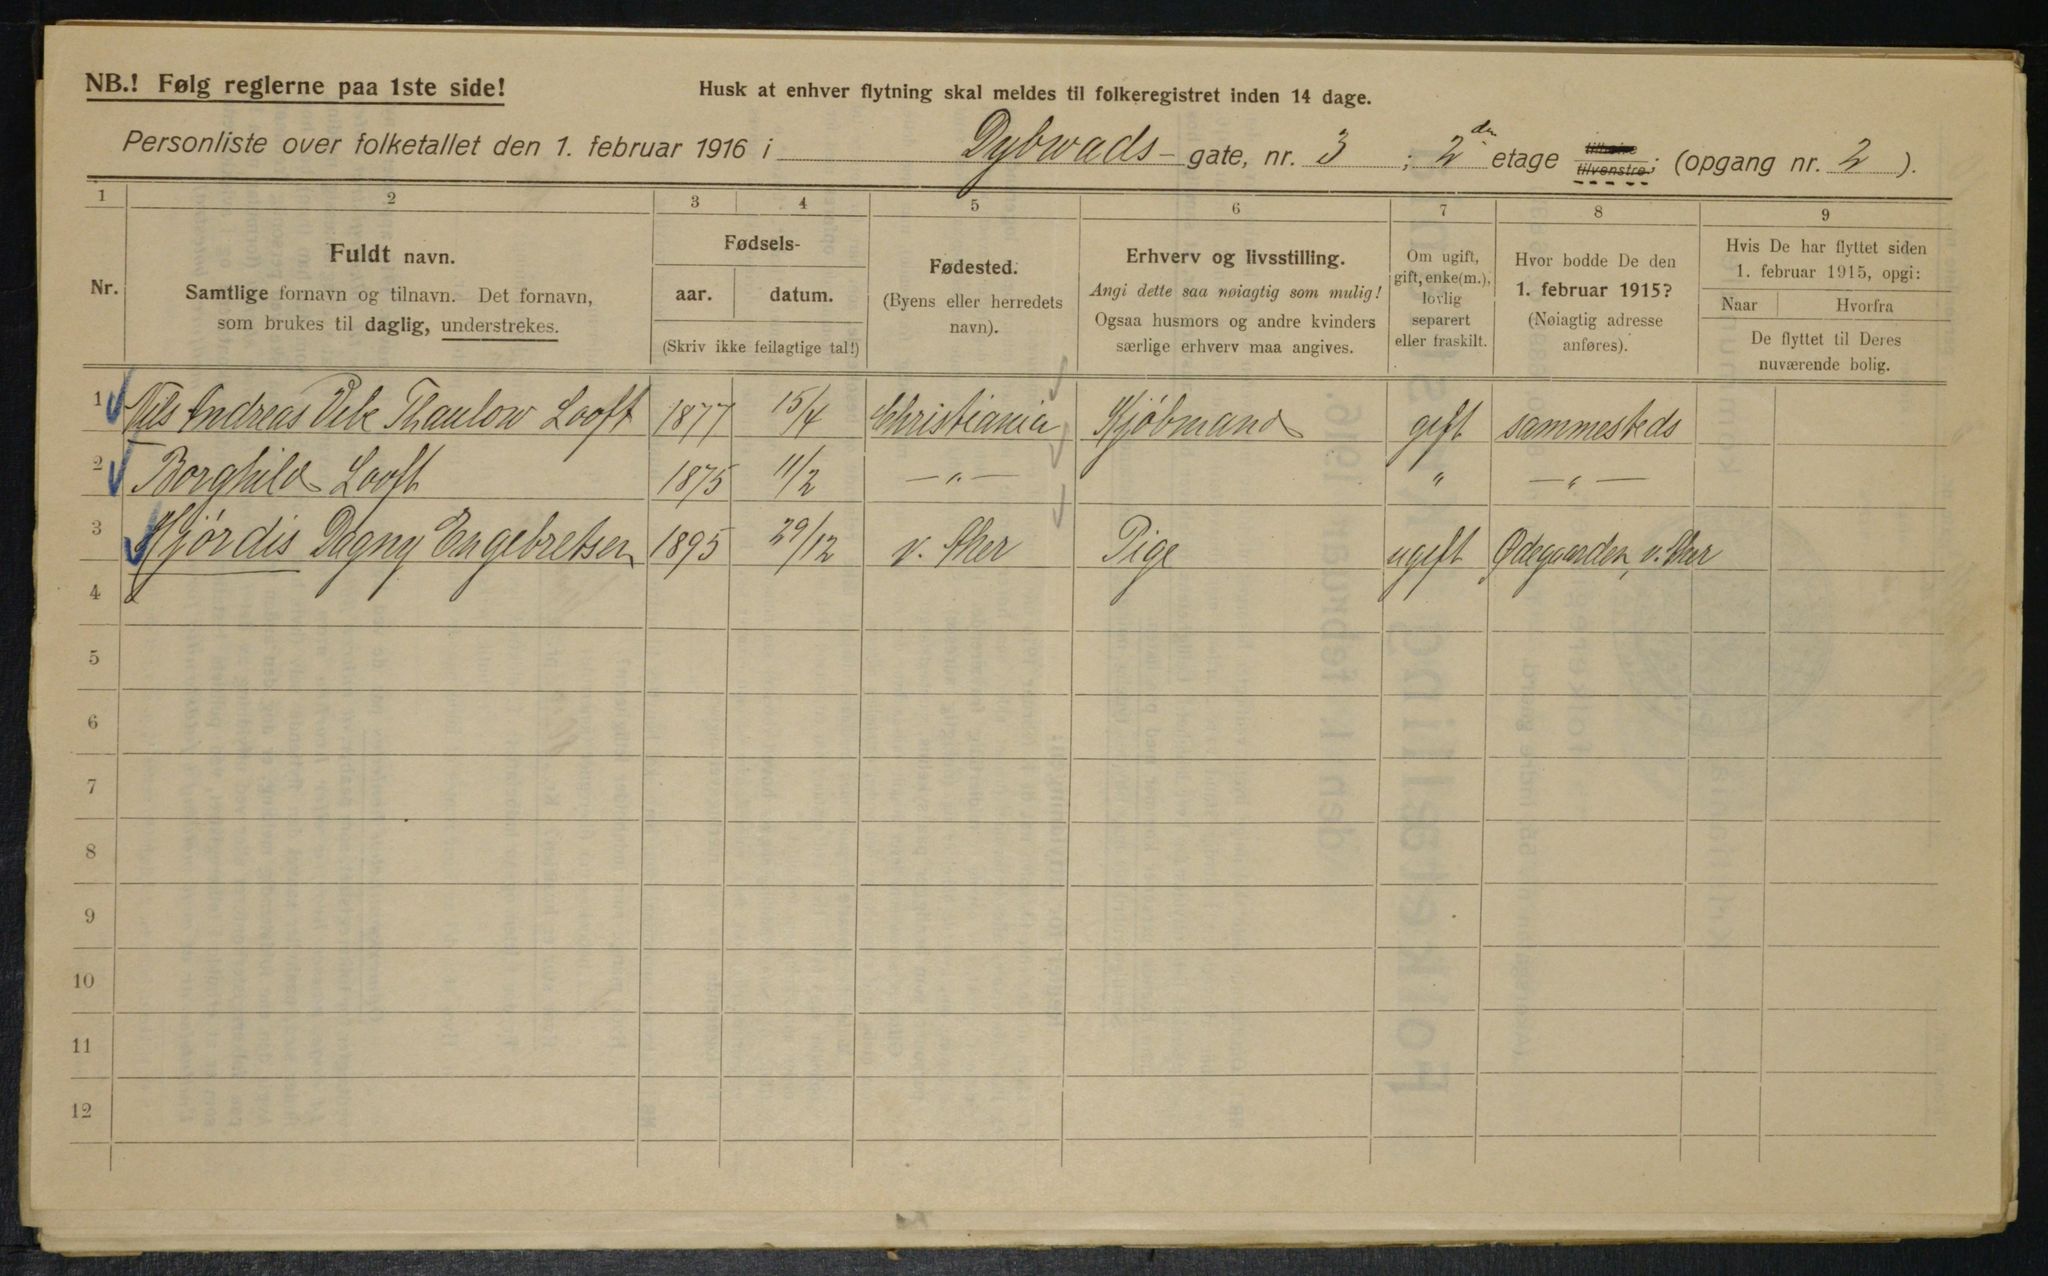 NB.! Følg reglerne paa 1ste side!
Husk at enhver flytning skal meldes til folkeregistret inden 14 dage.
Personliste over folketallet den 1. februar 1916 i Dybwads- gate, nr. 3 ; 2den etage tilhøire tilvenstre; (opgang nr. 2 ).
1 2 3 4 5 6 7 8 9
Nr.
Fuldt navn.
Samtlige fornavn og tilnavn. Det fornavn,
som brukes til daglig, understrekes.
Fødsels-
aar. datum.
(Skriv ikke feilagtige tal!)
Fødested.
(Byens eller herredets
navn).
Erhverv og livsstilling.
Angi dette saa nøiagtig som mulig!
Ogsaa husmors og andre kvinders
særlige erhverv maa angives.
Om ugift,
gift, enke(m.),
lovlig
separert
eller fraskilt.
Hvor bodde De den
1. februar 1915?
(Nøiagtig adresse
anføres).
Hvis De har flyttet siden
1. februar 1915, opgi:
Naar Hvorfra
De flyttet til Deres
nuværende bolig.
1 Nils Andreas Vibe Thaulow Looft 1877 15/4 Christiania Kjøbmand gift sammesteds
2 Borghild Looft 1875 11/2 —"— " —"—
3 Hjørdis Dagny Engebretsen 1895 29/12 v. Aker Pige ugift Ødegaarden, v. Aker
4
5
6
7
8
9
10
11
12